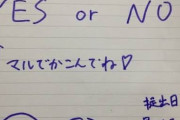 YES or NO
マルでかこんでね♡
提出日